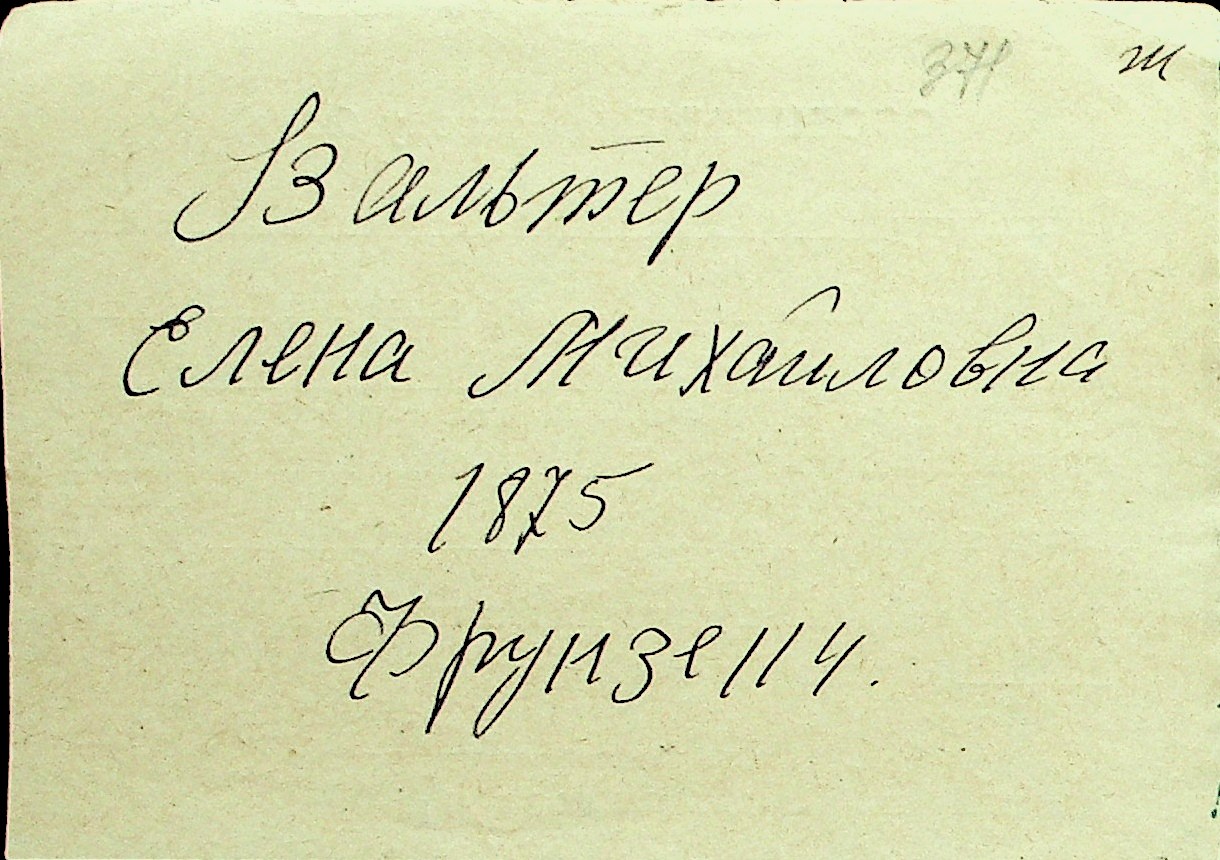 371 ж
Вальтер
Елена Михайловна
1875
Фрунзе 114.